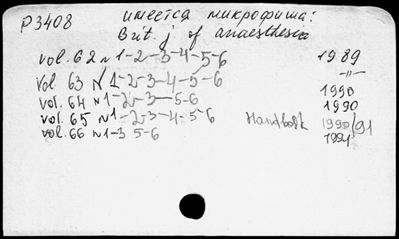 P3408 имеется микрофиша:
Brit j of anaesthesia
vol. 62 N 1-2-3-4-5-6 1989
vol 63 N 1-2-3-4-5-6 -"-
vol. 64 N1-2-3-5-6 1990
vol. 65 N1-2-3-4-5-6 1990
Handbook 1990/91
vol. 66 N1-3 5-6 1991